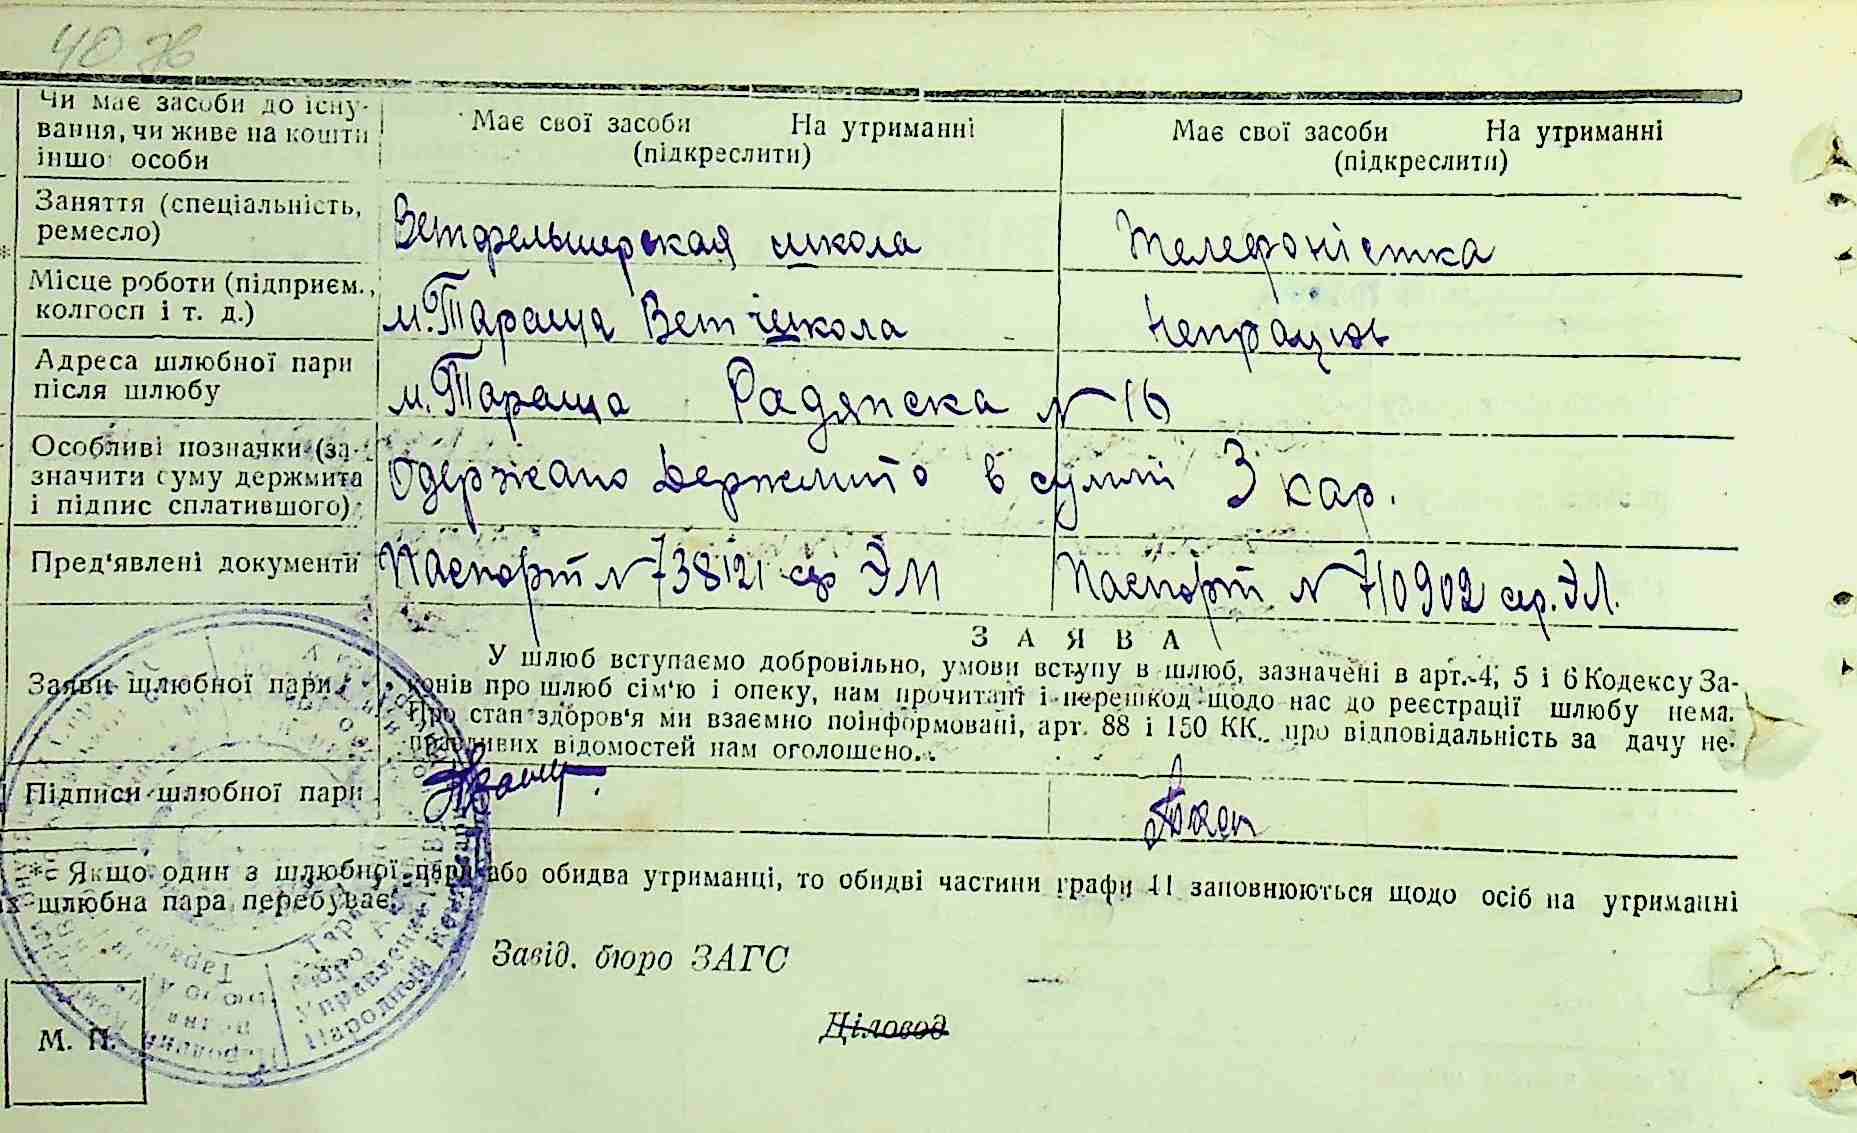 40
Чи має засоби до існу-
вання, чи живе на кошти
іншої особи
Має свої засоби На утриманні
(підкреслити)
Має свої засоби На утриманні
(підкреслити)
Заняття (спеціальність,
ремесло)
Ветфельшерская школа
Телефоністка
Місце роботи (підприєм.,
колгосп і т. д.)
м. Тараща Ветшкола
Непрацює
Адреса шлюбної пари
після шлюбу
м. Тараща Радянска № 16
Особливі позначки (за-
значити суму держмита
і підпис сплатившого)
Одержано Держмито в суммі 3 кар.
Пред'явлені документи
Паспорт № 738121 ср ЭМ
Паспорт № 710902 ср. ЭЛ.
Заяви шлюбної пари
ЗАЯВА
У шлюб вступаємо добровільно, умови вступу в шлюб, зазначені в арт. 4, 5 і 6 Кодексу За-
конів про шлюб сім'ю і опеку, нам прочитані і перешкод щодо нас до реєстрації шлюбу нема.
Про стан здоров'я ми взаємно поінформовані, арт. 88 і 150 КК. про відповідальність за дачу не-
правдивих відомостей нам оголошено.
Підписи шлюбної пари
* Якщо один з шлюбної пари або обидва утриманці, то обидві частини графи 11 заповнюються щодо осіб на утриманні
их шлюбна пара перебуває.
Завід. бюро ЗАГС
Діловод
М. П.